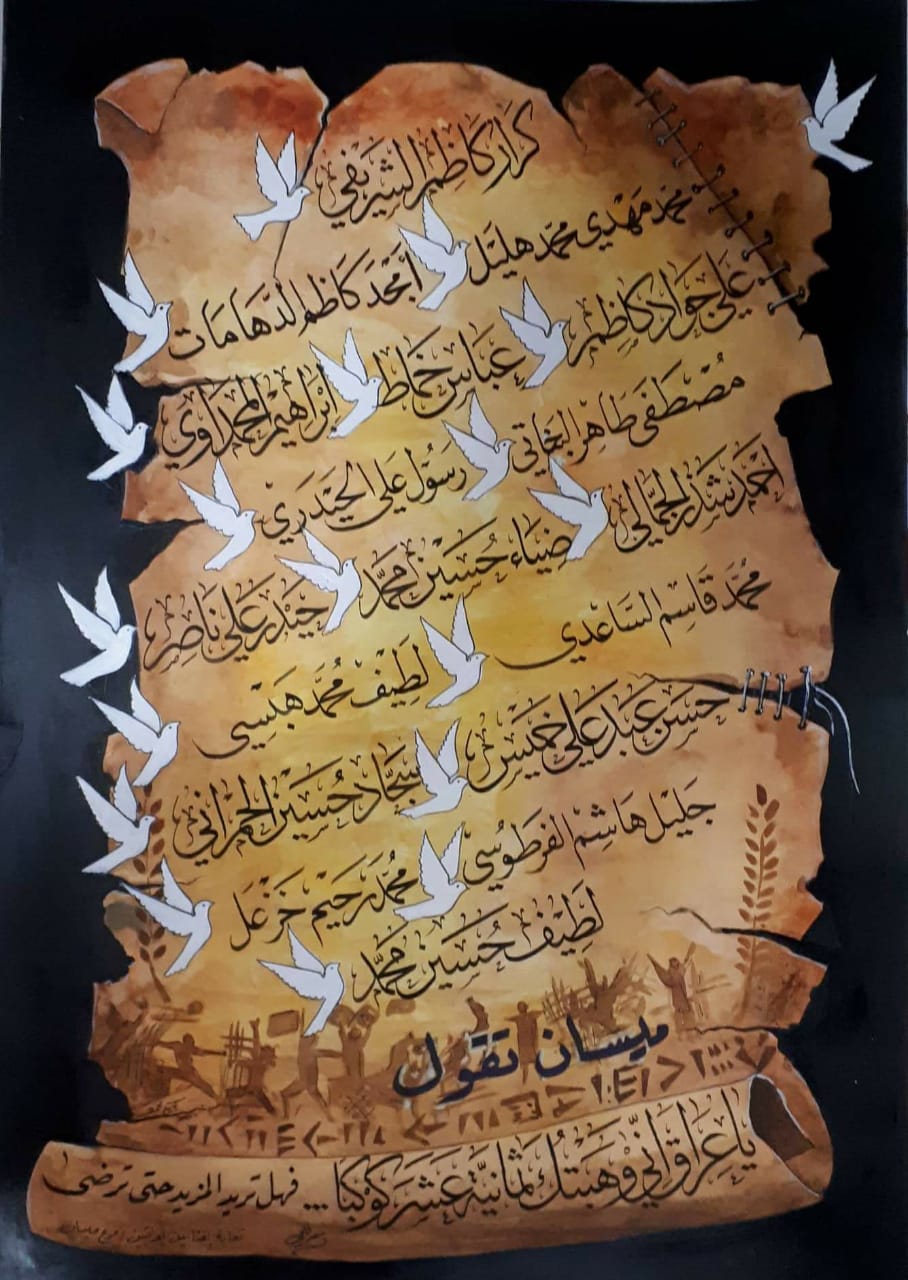 كرار كاظم الشريفي
محمد مهدي محمد هليل
أمجد كاظم الدهامات
علي جواد كاظم
عباس خماط
ابراهيم المحمداوي
مصطفى طاهر البخاتي
رسول علي الحيدري
احمد شذر الجمالي
ضياء حسين محمد
حيدر علي ناصر
محمد قاسم الساعدي
لطيف محمد هبيسي
حسن عبد علي خميس
سجاد حسين الحمراني
جليل هاشم الفرطوسي
محمد رحيم خزعل
لطيف حسين محمد
ميسان تقول
يا عراق اني وهبتك ثمانية عشر كوكبا ... فهل تريد المزيد حتى ترضى